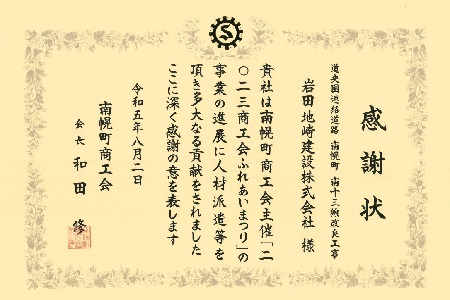 感謝状
道央圏連絡道路 南幌町 南十三線改良工事
岩田地崎建設株式会社 様
貴社は南幌町商工会主催「二
〇二三商工会ふれあいまつり」の
事業の進展に人材派遣等を
頂き多大なる貢献をされました
ここに深く感謝の意を表します
令和五年八月二日
南幌町商工会
会長 和田 修